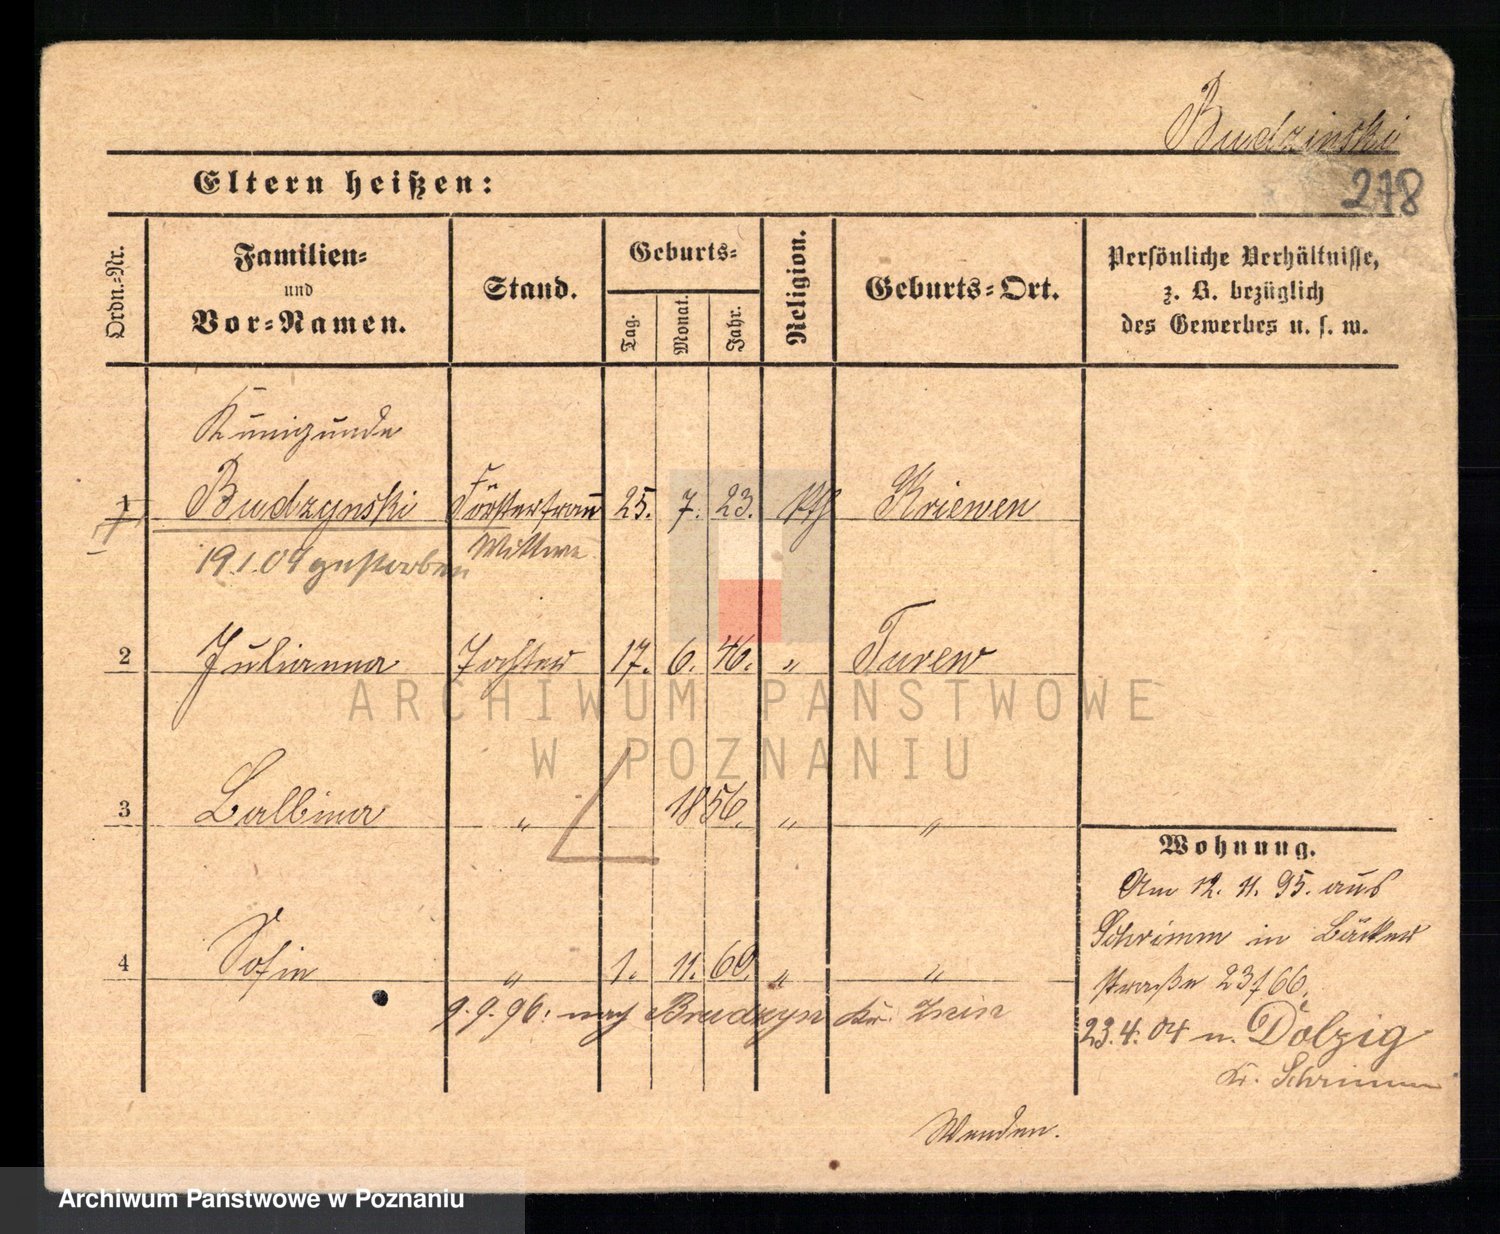 Budzinski
Eltern heißen:
278
Ordn.-Nr.
Familien-
und
Vor-Namen.
Stand.
Geburts-
Tag.
Monat.
Jahr.
Religion.
Geburts-Ort.
Persönliche Verhältnisse,
z. B. bezüglich
des Gewerbes u. s. w.
Kunigunde
1 Budzynski Försterfrau 25. 7. 23. kth Kriewen
19.1.09 gestorben Wittwe
2 Julianna Tochter 17. 6. 46. " Turew
ARCHIWUM PAŃSTWOWE
W POZNANIU
3 Balbina " 1856. " "
Wohnung.
Am 12. 11. 95. aus
Schrimm in Bäcker
straße 23 f 66.
4 Sofie " 1. 11. 60. " "
9.9.96. nach Brudzyn Kr. Znin
23.4.04 n. Dolzig
Kr. Schrimm
Wenden.
Archiwum Państwowe w Poznaniu